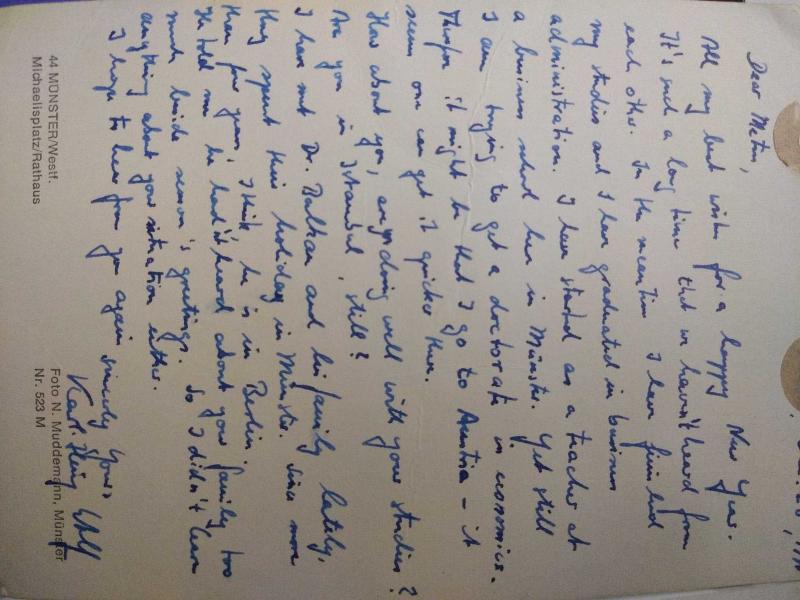 Dear Metin,
All my best wishes for a happy New Year.
It's such a long time that we haven't heard from
each other. In the meantime I have finished
my studies and I have graduated in business
administration. I have started as a teacher at
a business school here in Münster. Yet still
I am trying to get a doctorate in economics.
Therefor it might be that I go to Austria - it
seems one can get it quicker there.
How about you, anything well with your studies?
Are you in Istanbul, still?
I have met Dr. Balkan and his family lately,
they spent their holiday in Münster. Since more
than four years, I think, he is in Berlin.
He told me he hadn't heard about your family too
much beside season's greetings. So I didn't learn
anything about your situation either.
I hope to hear from you again sincerely yours
Karl-Heinz
44 MÜNSTER/Westf.
Michaelisplatz/Rathaus
Foto N. Muddemann, Münster
Nr. 523 M